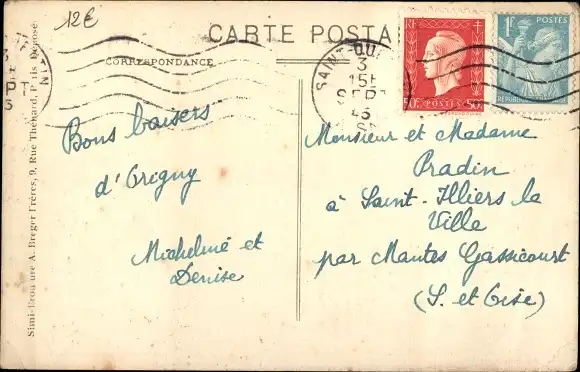 12€
CARTE POSTA
CORRESPONDANCE
SAINT-QU
3
15H
SEPT
45
RF
50c POSTES 50c
1F POSTES
Bons baisers
d'Origny
Micheline et
Denise
Monsieur et Madame
Pradin
à Saint-Illiers la
Ville
par Mantes Gassicourt
(S. et Oise)
A. Breger Frères, 9, Rue Thénard, Paris Déposé